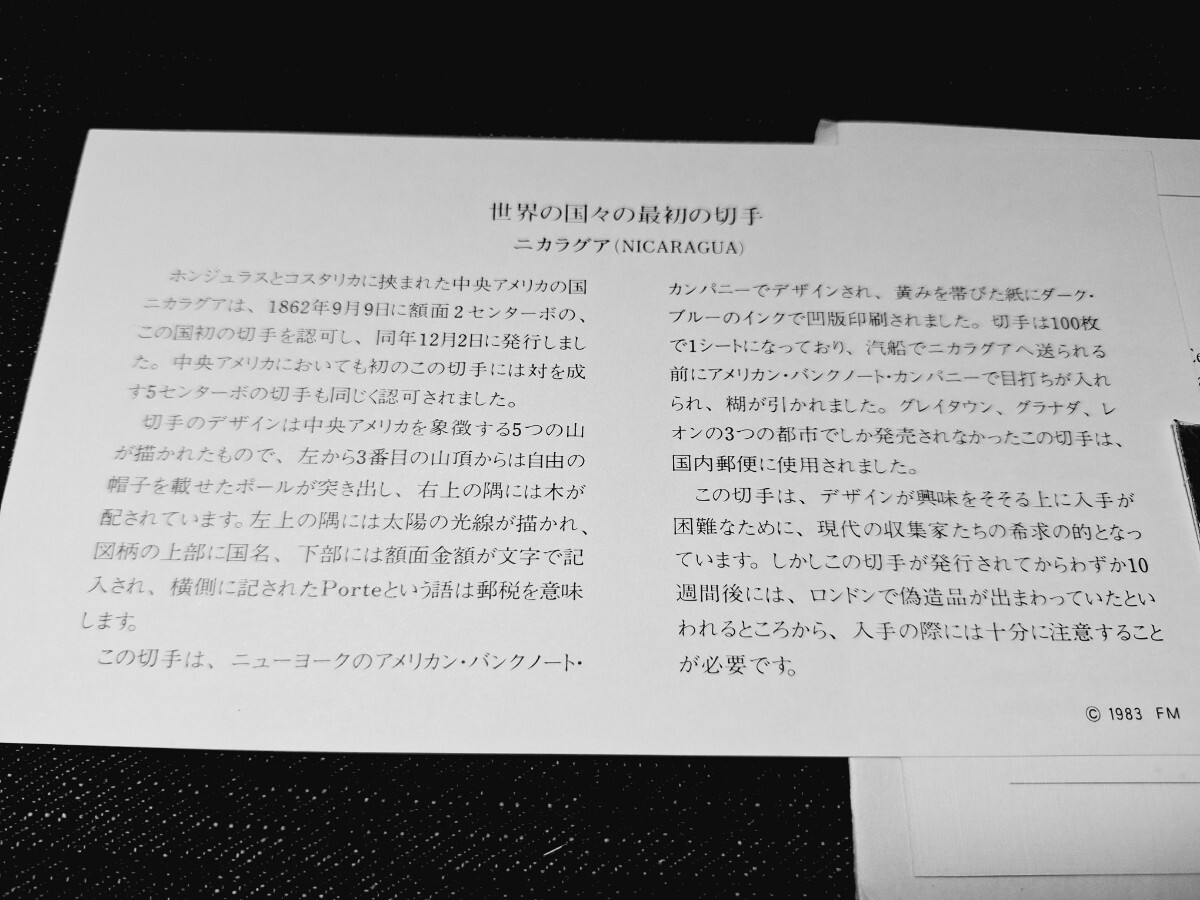 世界の国々の最初の切手
ニカラグア(NICARAGUA)
ホンジュラスとコスタリカに挟まれた中央アメリカの国
ニカラグアは、1862年9月9日に額面2センターボの、
この国初の切手を認可し、同年12月2日に発行しまし
た。中央アメリカにおいても初のこの切手には対を成
す5センターボの切手も同じく認可されました。
切手のデザインは中央アメリカを象徴する5つの山
が描かれたもので、左から3番目の山頂からは自由の
帽子を載せたポールが突き出し、右上の隅には木が
配されています。左上の隅には太陽の光線が描かれ、
図柄の上部に国名、下部には額面金額が文字で記
入され、横側に記されたPorteという語は郵税を意味
します。
この切手は、ニューヨークのアメリカン・バンクノート・
カンパニーでデザインされ、黄みを帯びた紙にダーク・
ブルーのインクで凹版印刷されました。切手は100枚
で1シートになっており、汽船でニカラグアへ送られる
前にアメリカン・バンクノート・カンパニーで目打ちが入れ
られ、糊が引かれました。グレイタウン、グラナダ、レ
オンの3つの都市でしか発売されなかったこの切手は、
国内郵便に使用されました。
この切手は、デザインが興味をそそる上に入手が
困難なために、現代の収集家たちの希求の的となっ
ています。しかしこの切手が発行されてからわずか10
週間後には、ロンドンで偽造品が出まわっていたとい
われるところから、入手の際には十分に注意すること
が必要です。
© 1983 FM